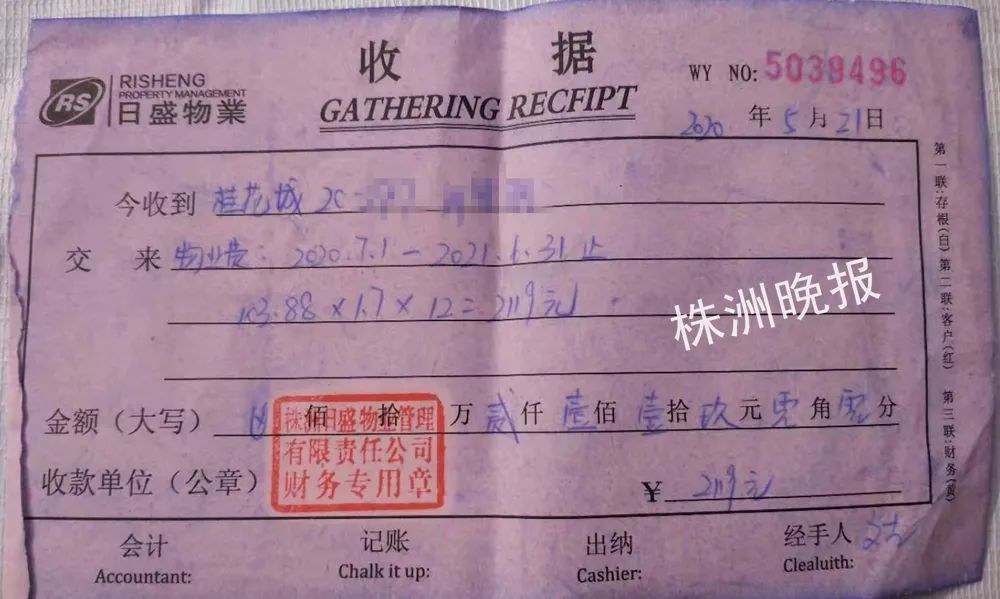 RS
RISHENG
PROPERTY MANAGEMENT
日盛物業
收 据
GATHERING RECFIPT
WY NO: 5039496
2020 年 5 月 21 日
今收到 桂花城 2C-
交 来 物业费: 2020.7.1-2021.6.31止
103.88×1.7×12=2119元
株洲晚报
金额(大写) 佰 拾 万 贰 仟 壹 佰 壹 拾 玖 元 零 角 零 分
收款单位(公章) ¥ 2119元
株洲日盛物业管理
有限责任公司
财务专用章
会计 记账 出纳 经手人
Accountant: Chalk it up: Cashier: Clealuith:
第一联:存根(白) 第二联:客户(红) 第三联:财务(黄)